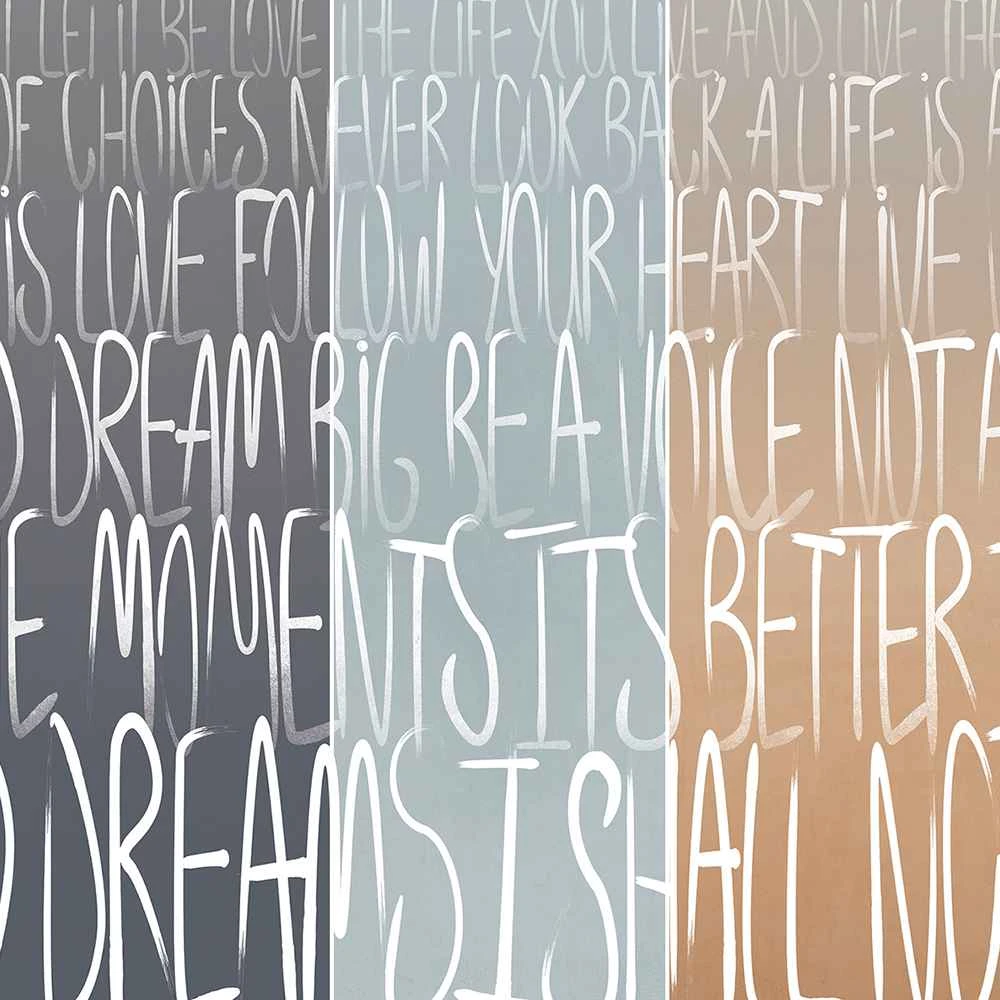 LET IT BE LOVE THE LIFE YOU LIVE AND LIVE THE
OF CHOICES NEVER LOOK BACK A LIFE IS A
IS LOVE FOLLOW YOUR HEART LIVE
DREAM BIG BE A VOICE NOT A
E MOMENTS ITS BETTER
DREAMS I SHALL NO